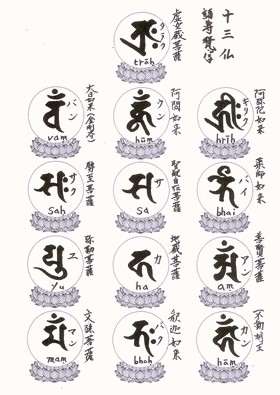 十三仏
虚空蔵菩薩
タラク
trāh
阿弥陀如来
キリク
hrīh
阿閦如来
ウン
hūm
大日如来(金剛界)
バン
vam
薬師如来
バイ
bhai
聖観自在菩薩
サ
sa
勢至菩薩
サク
sah
普賢菩薩
アン
am
地蔵菩薩
カ
ha
弥勒菩薩
ユ
yu
不動明王
カン
hām
釈迦如来
バク
bhah
文殊菩薩
マン
mam